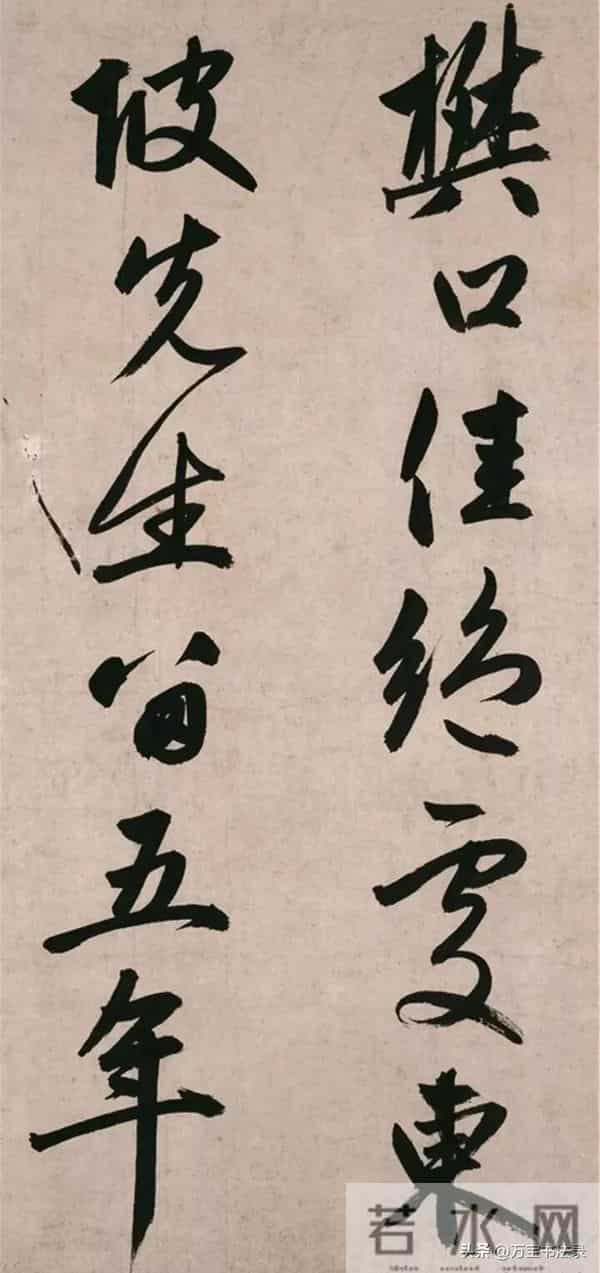 樊口佳絕處東
坡先生留五年
若水网
头条 @万宝书法录